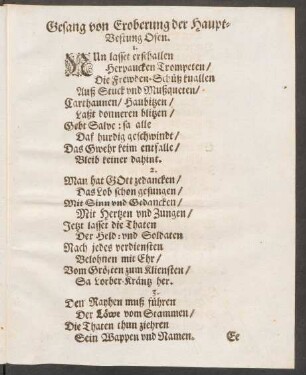 Gesang von Eroberung der Haupt-
Vestung Ofen.
1.
NUn lasset erschallen
Herpaucken Trompeten/
Die Frewden-Schütz knallen
Auß Stuck vnd Mußqueten/
Carthaunen/ Haubitzen/
Laßt donneren blitzen/
Gebt Salve: sa alle
Daß hurdig geschwindt/
Das Gwehr keim entfalle/
Bleib keiner dahint.
2.
Man hat GOtt zedancken/
Das Lob schon gesungen/
Mit Sinn vnd Gedancken/
Mit Hertzen vnd Zungen/
Jetzt lasset die Thaten
Der Held: vnd Soldaten
Nach jedes verdiensten
Belohnen mit Ehr/
Vom Grösten zum Kliensten/
Sa Lorber-Kräntz her.
3.
Den Rayhen muß führen
Der Löwe vom Stammen/
Die Thaten thun ziehren
Sein Wappen vnd Namen.
Ee